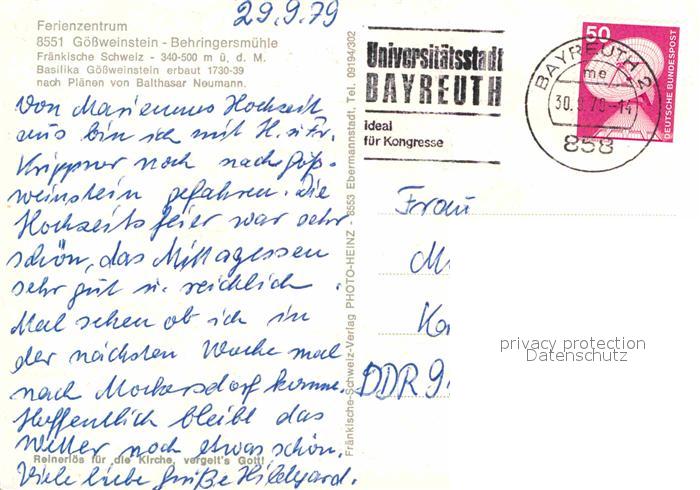 29.9.79
Ferienzentrum
8551 Gößweinstein - Behringersmühle
Fränkische Schweiz - 340-500 m ü. d. M.
Basilika Gößweinstein erbaut 1730-39
nach Plänen von Balthasar Neumann.
Von Mariennes Hochzeit
aus bin ich mit H. u. Fr.
Krippner noch nach Göß-
weinstein gefahren. Die
Hochzeitsfeier war sehr
schön, das Mittagessen
sehr gut u. reichlich.
Mal sehen ob ich in
der nächsten Woche mal
nach Mockersdorf komme.
Hoffentlich bleibt das
Wetter noch etwas schön.
Reinerlös für die Kirche, vergelt's Gott!
Viele liebe Grüße Hildgard.
Fränkische-Schweiz-Verlag PHOTO-HEINZ - 8553 Ebermannstadt, Tel. 09194/302
Universitätsstadt
BAYREUTH
ideal
für Kongresse
BAYREUTH 2
me
30.9.79-14
858
50
DEUTSCHE BUNDESPOST
Frau
M
Ka
DDR 9
privacy protection
Datenschutz